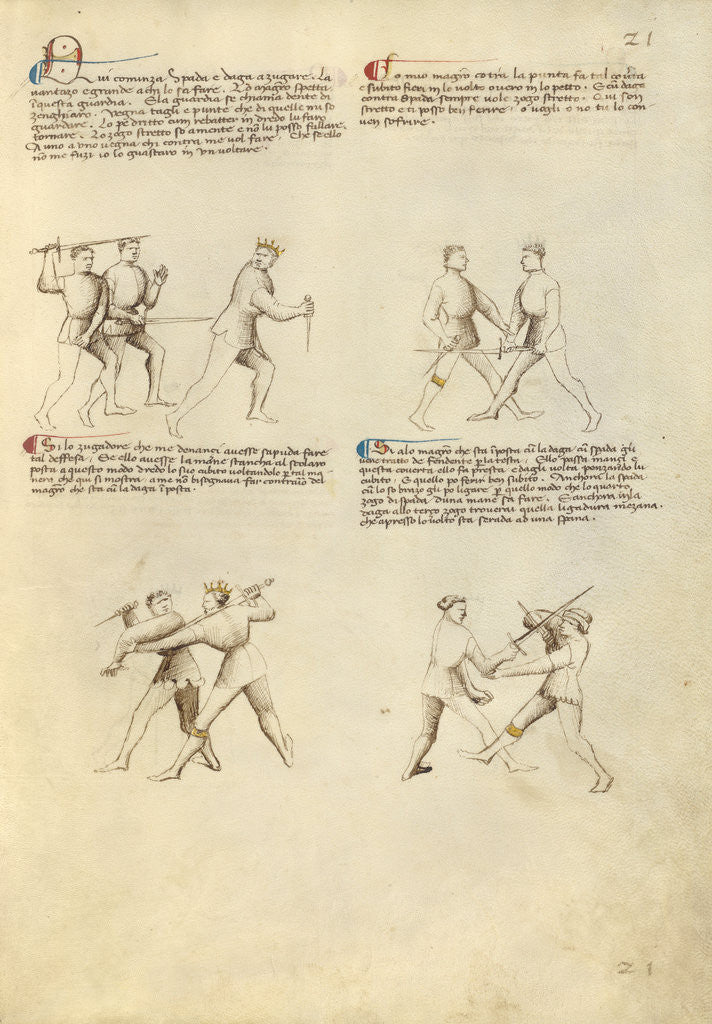 21
Qui cominza Spada e daga a zugare. La
vantazo e grande a chi lo sa fare. Lo Magistro spetta
in questa guardia. E la guardia se chiama dente di
zenghiaro. Vegna tagli e punte che di quelle mi so
guardare. Lo pe dritto cum rebatter in dredo lu faro
tornare. Lo zogo stretto so a mente e non lu posso fallare.
A uno a uno vegna chi contra me vol fare. Che se ello
no me fuzi io lo guastaro in un voltare.
Lo mio magistro contra la punta fa tal coverta
e subito fieri in lo volto overo in lo petto. E cum daga
contra Spada sempre vole zogo stretto. Qui son
stretto e ti posso ben ferire, o vogli o no tu lo con
ven sofrire.
Si lo zugadore che me denanci avesse sapuda fare
tal deffesa, Se ello avesse la mane stancha al scolaro
posta a questo modo dredo lo suo cubito voltandolo per tal ma
nera che qui si mostra a me non bisognava far contrario del
magistro che sta cum la daga in posta.
Si alo magistro che sta in posta cum la daga cum spada gli
vene tratto de fendente per la testa, Ello passa inanci e
questa coverta ello fa presta e dagli volta ponzando lu
cubito, E quello po ferir ben subito. Anchora la spada
cum lo so brazo gli po ligare per quello modo che lo quarto
zogo di spada d'una mane sa fare. E anchora in la
daga allo terzo zogo troverai quella ligadura mezana.
che apresso lo volto sta serada ad una spana.
21